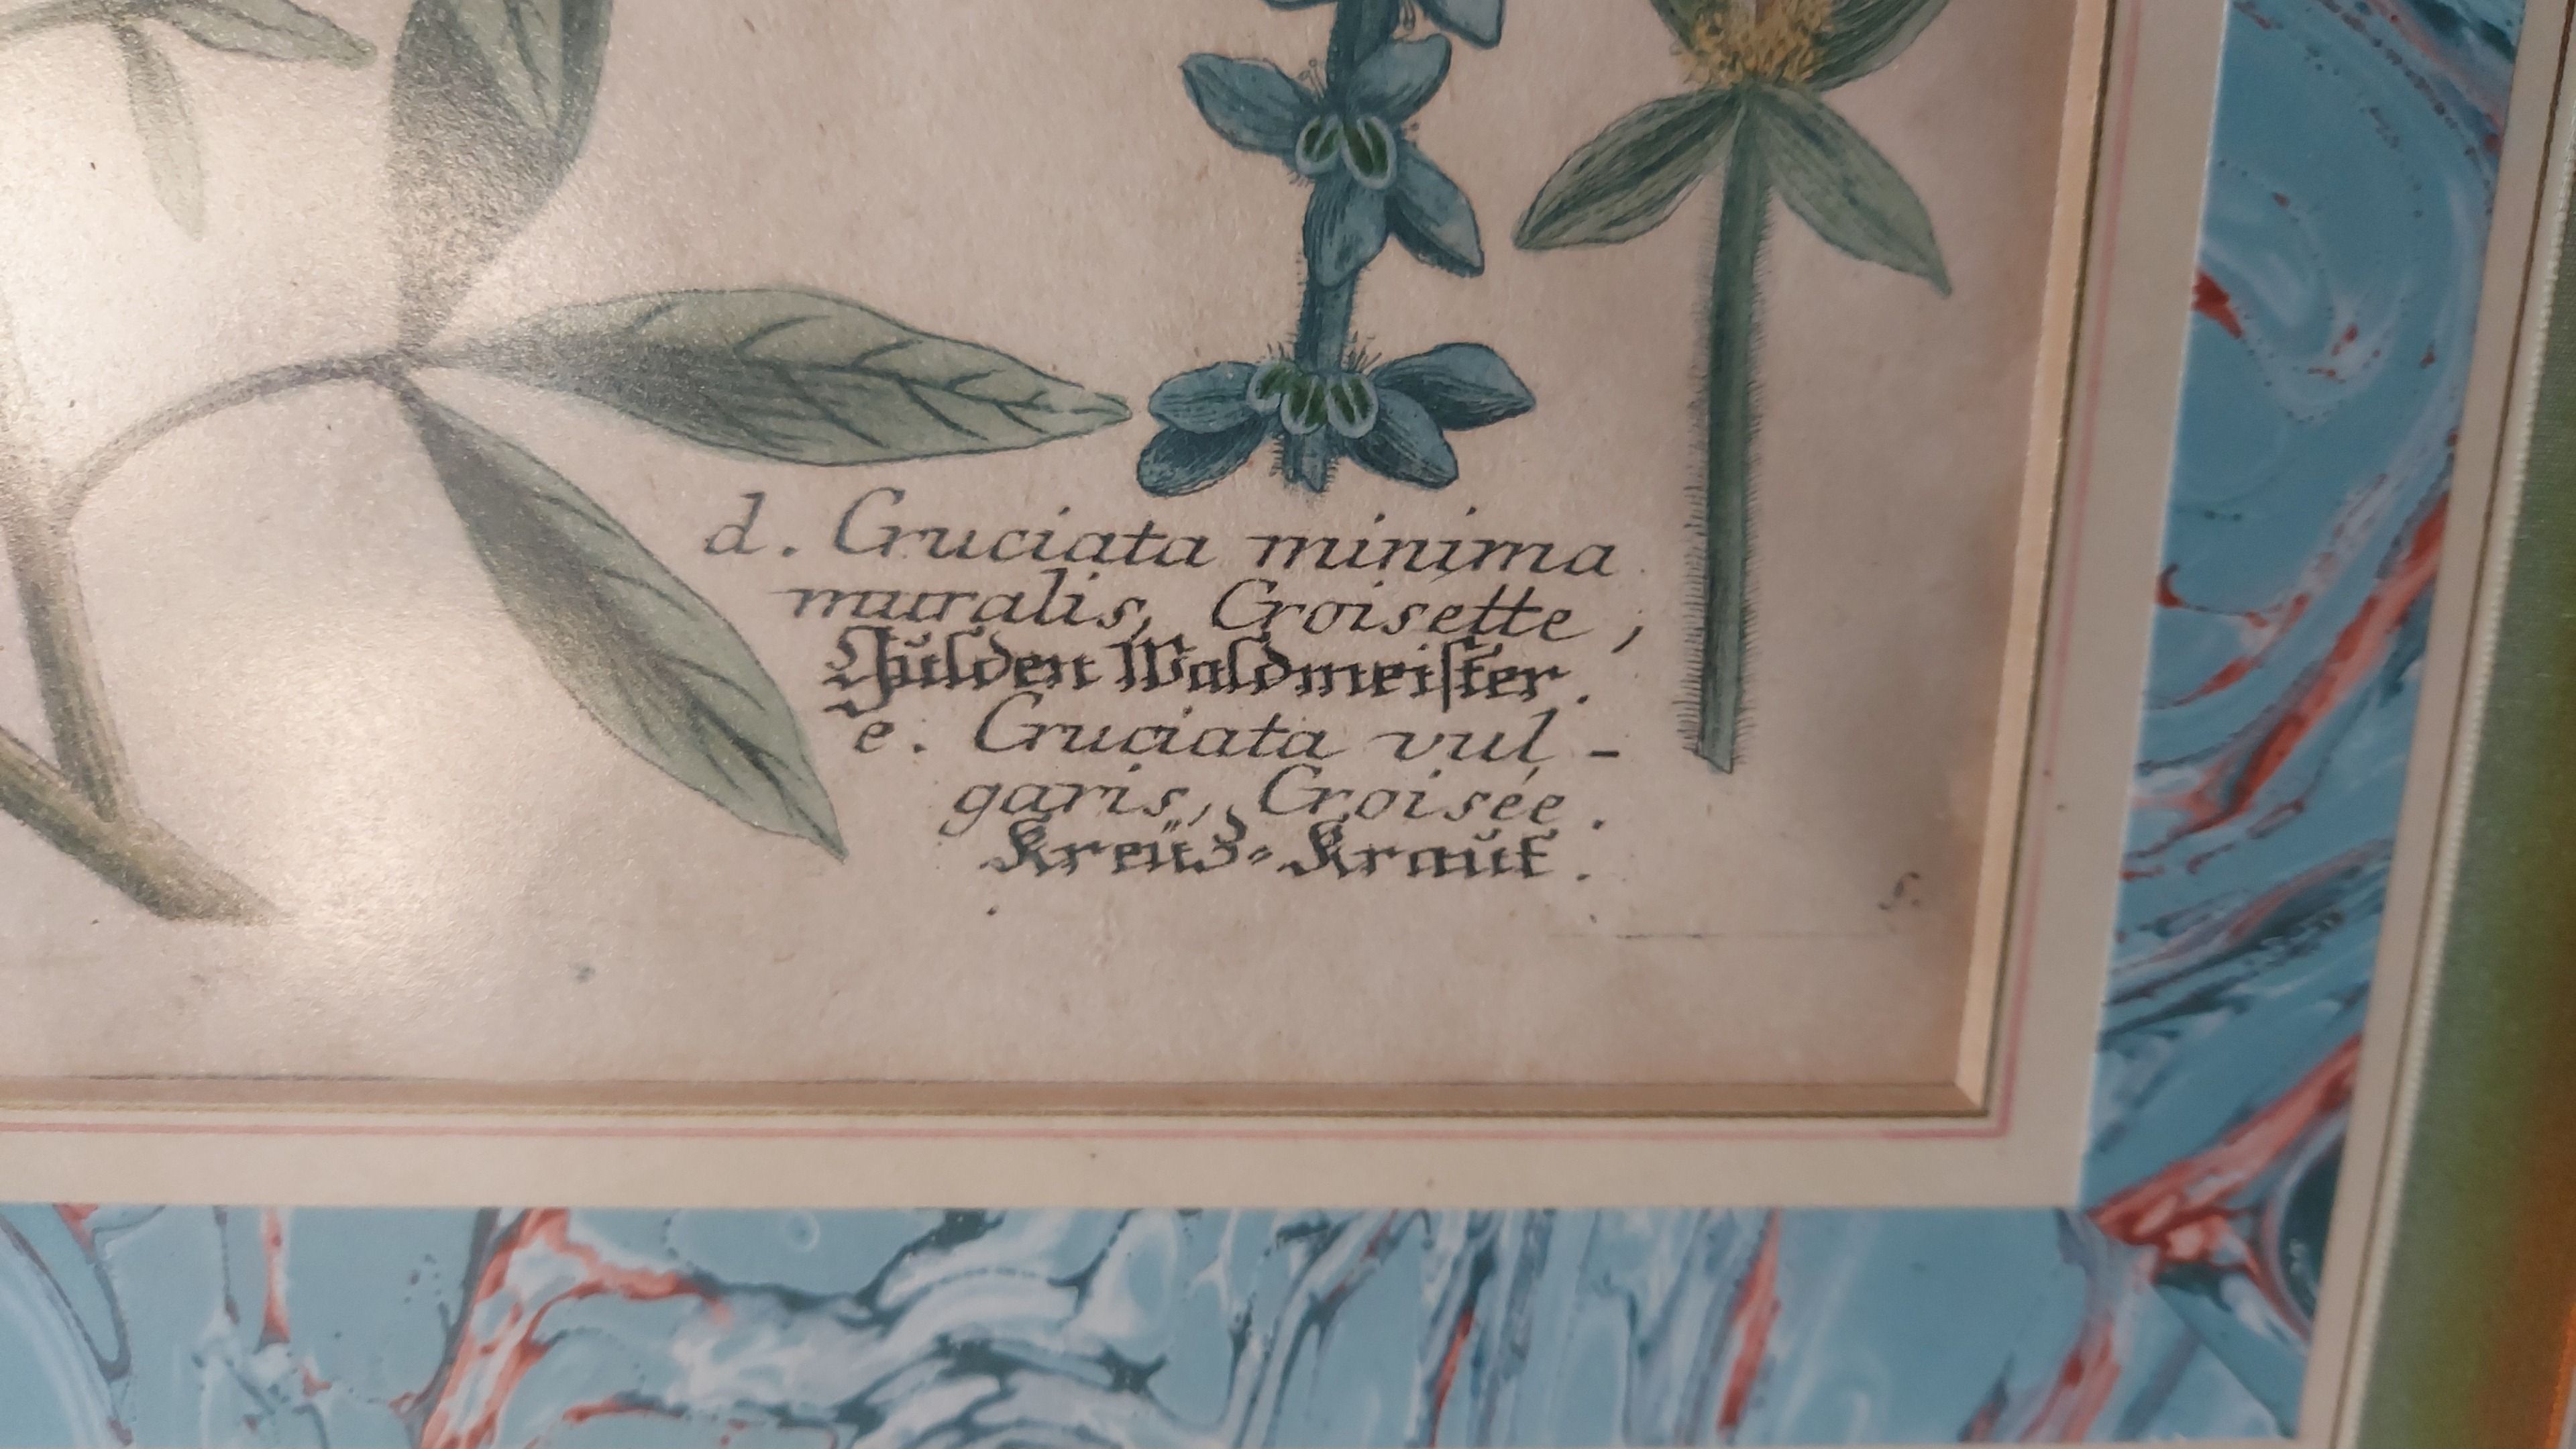 d. Cruciata minima
muralis, Croisette,
Gŭlden Waldmeiſter.
e. Cruciata vul-
garis, Croisée.
Kreüz-Kraŭt.
S.